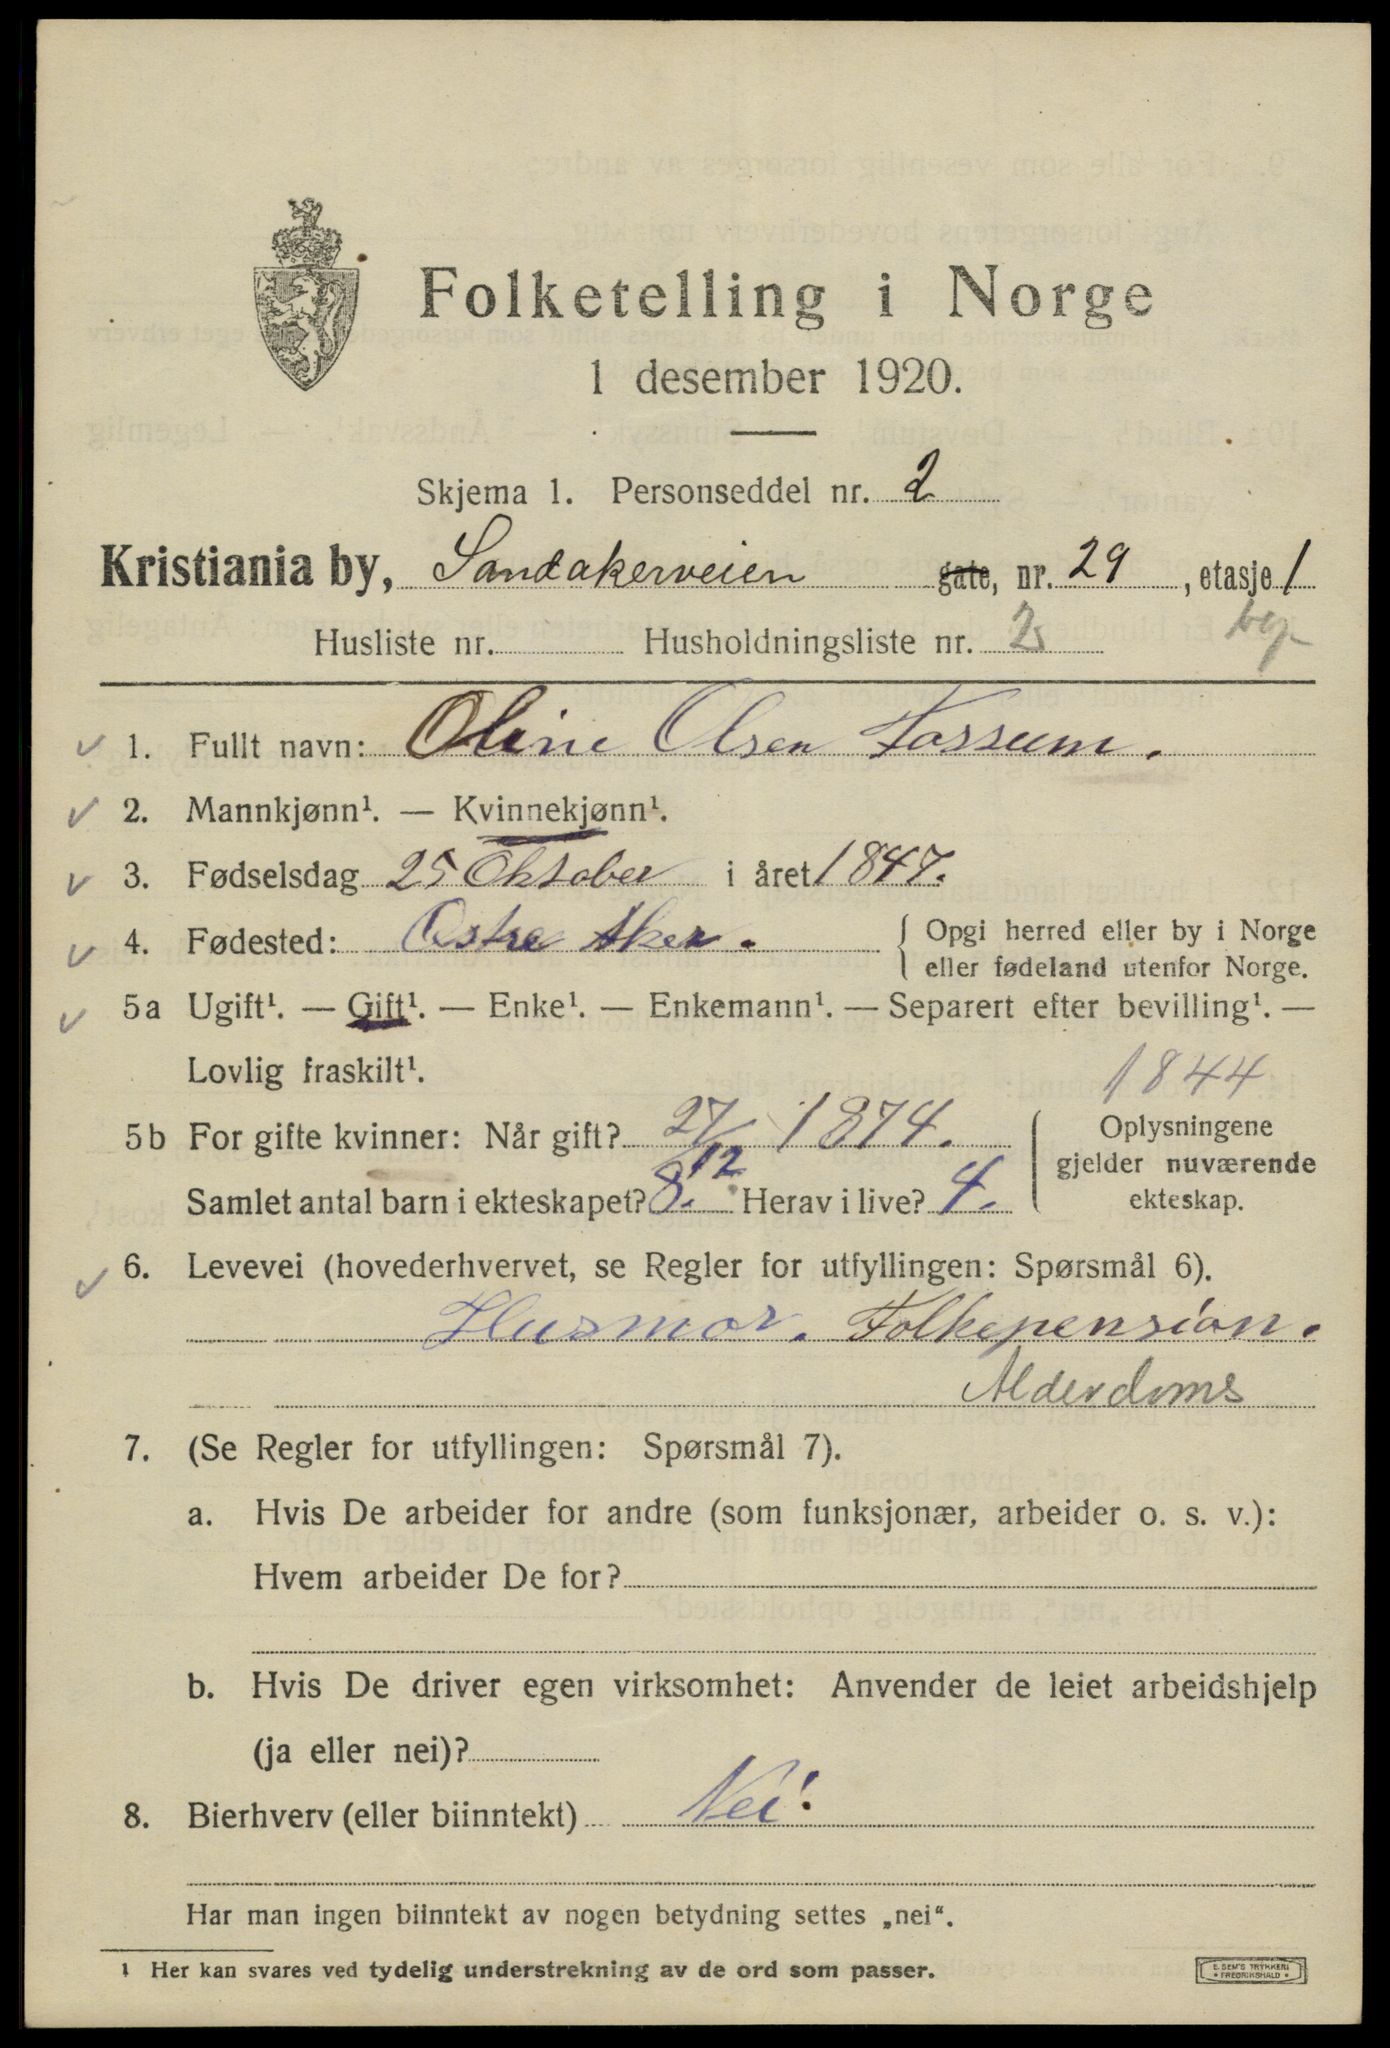 Folketelling i Norge
1 desember 1920.
Skjema 1. Personseddel nr. 2
Kristiania by, Sandakerveien gate, nr. 29, etasje 1
Husliste nr. Husholdningsliste nr. 2
1. Fullt navn: Oline Olsen Fossum.
2. Mannkjønn¹. — Kvinnekjønn¹.
3. Fødselsdag 25 Oktober i året 1847.
4. Fødested: Østre Aker. Opgi herred eller by i Norge
eller fødeland utenfor Norge.
5a Ugift¹. — Gift¹. — Enke¹. — Enkemann¹. — Separert efter bevilling¹. —
Lovlig fraskilt¹.
1844
5b For gifte kvinner: Når gift? 27/12 1874.
Samlet antal barn i ekteskapet? 8. Herav i live? 4.
Oplysningene
gjelder nuværende
ekteskap.
6. Levevei (hovederhvervet, se Regler for utfyllingen: Spørsmål 6).
Husmor. Folkepension.
Alderdoms
7. (Se Regler for utfyllingen: Spørsmål 7).
a. Hvis De arbeider for andre (som funksjonær, arbeider o. s. v.):
Hvem arbeider De for?
b. Hvis De driver egen virksomhet: Anvender de leiet arbeidshjelp
(ja eller nei)?
8. Bierhverv (eller biinntekt) Nei.
Har man ingen biinntekt av nogen betydning settes „nei“.
¹ Her kan svares ved tydelig understrekning av de ord som passer.
E. SEM'S TRYKKERI
FREDRIKSHALD